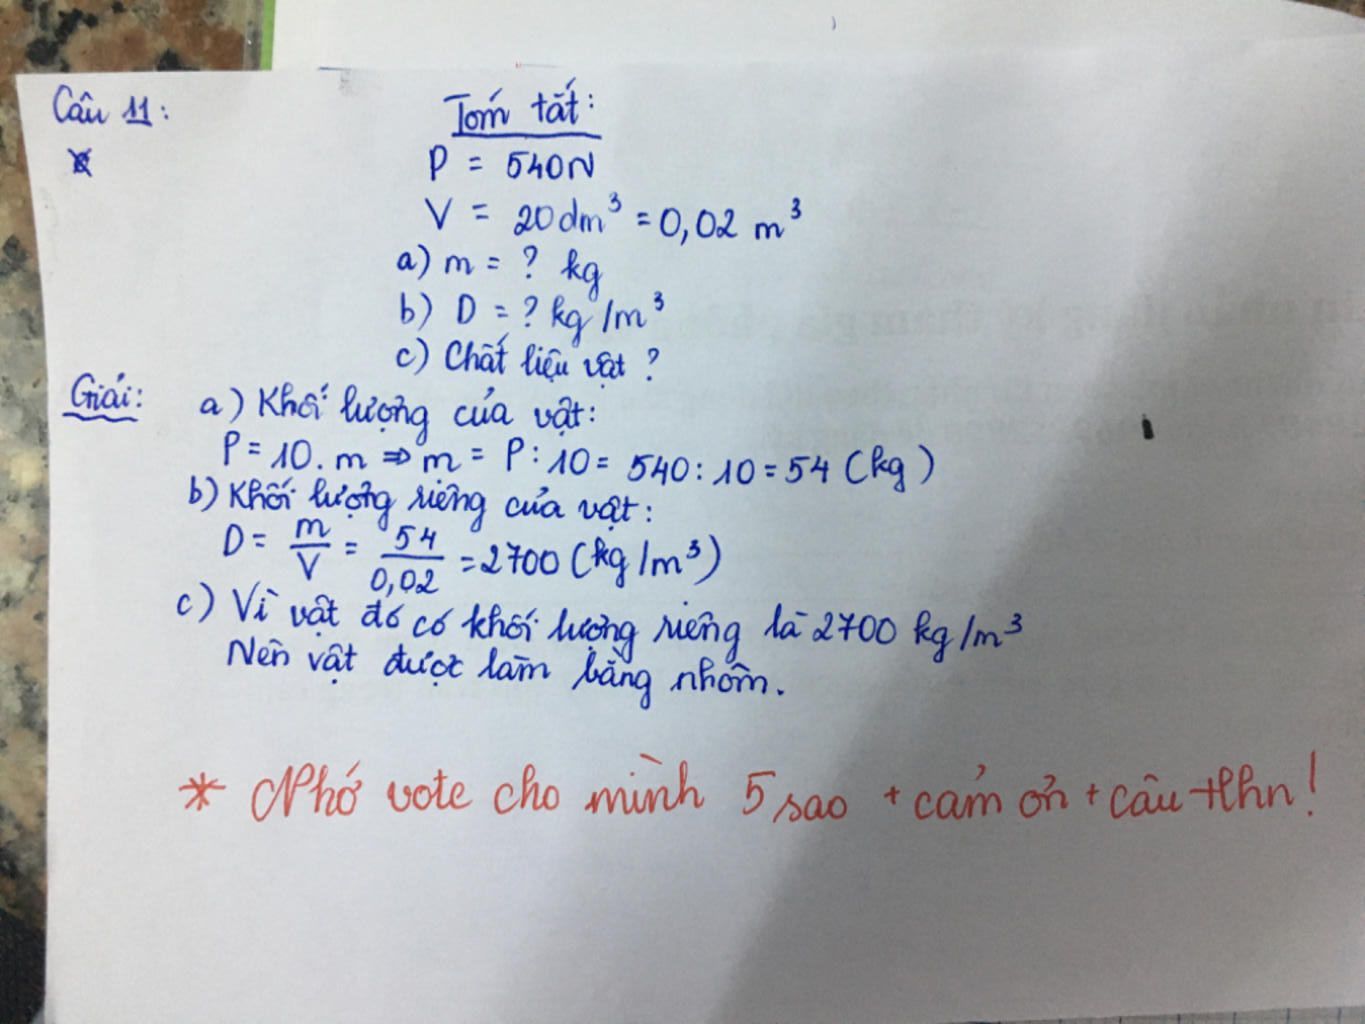 Câu 11:
Tóm tắt:
P = 540N
V = 20dm³ = 0,02 m³
a) m = ? kg
b) D = ? kg/m³
c) Chất liệu vật ?
Giải:
a) Khối lượng của vật:
P = 10. m => m = P : 10 = 540 : 10 = 54 (kg)
b) Khối lượng riêng của vật:
D = m/V = 54/0,02 = 2700 (kg/m³)
c) Vì vật đó có khối lượng riêng là 2700 kg/m³
Nên vật được làm bằng nhôm.
* Nhớ vote cho mình 5 sao + cảm ơn + câu tlhn!